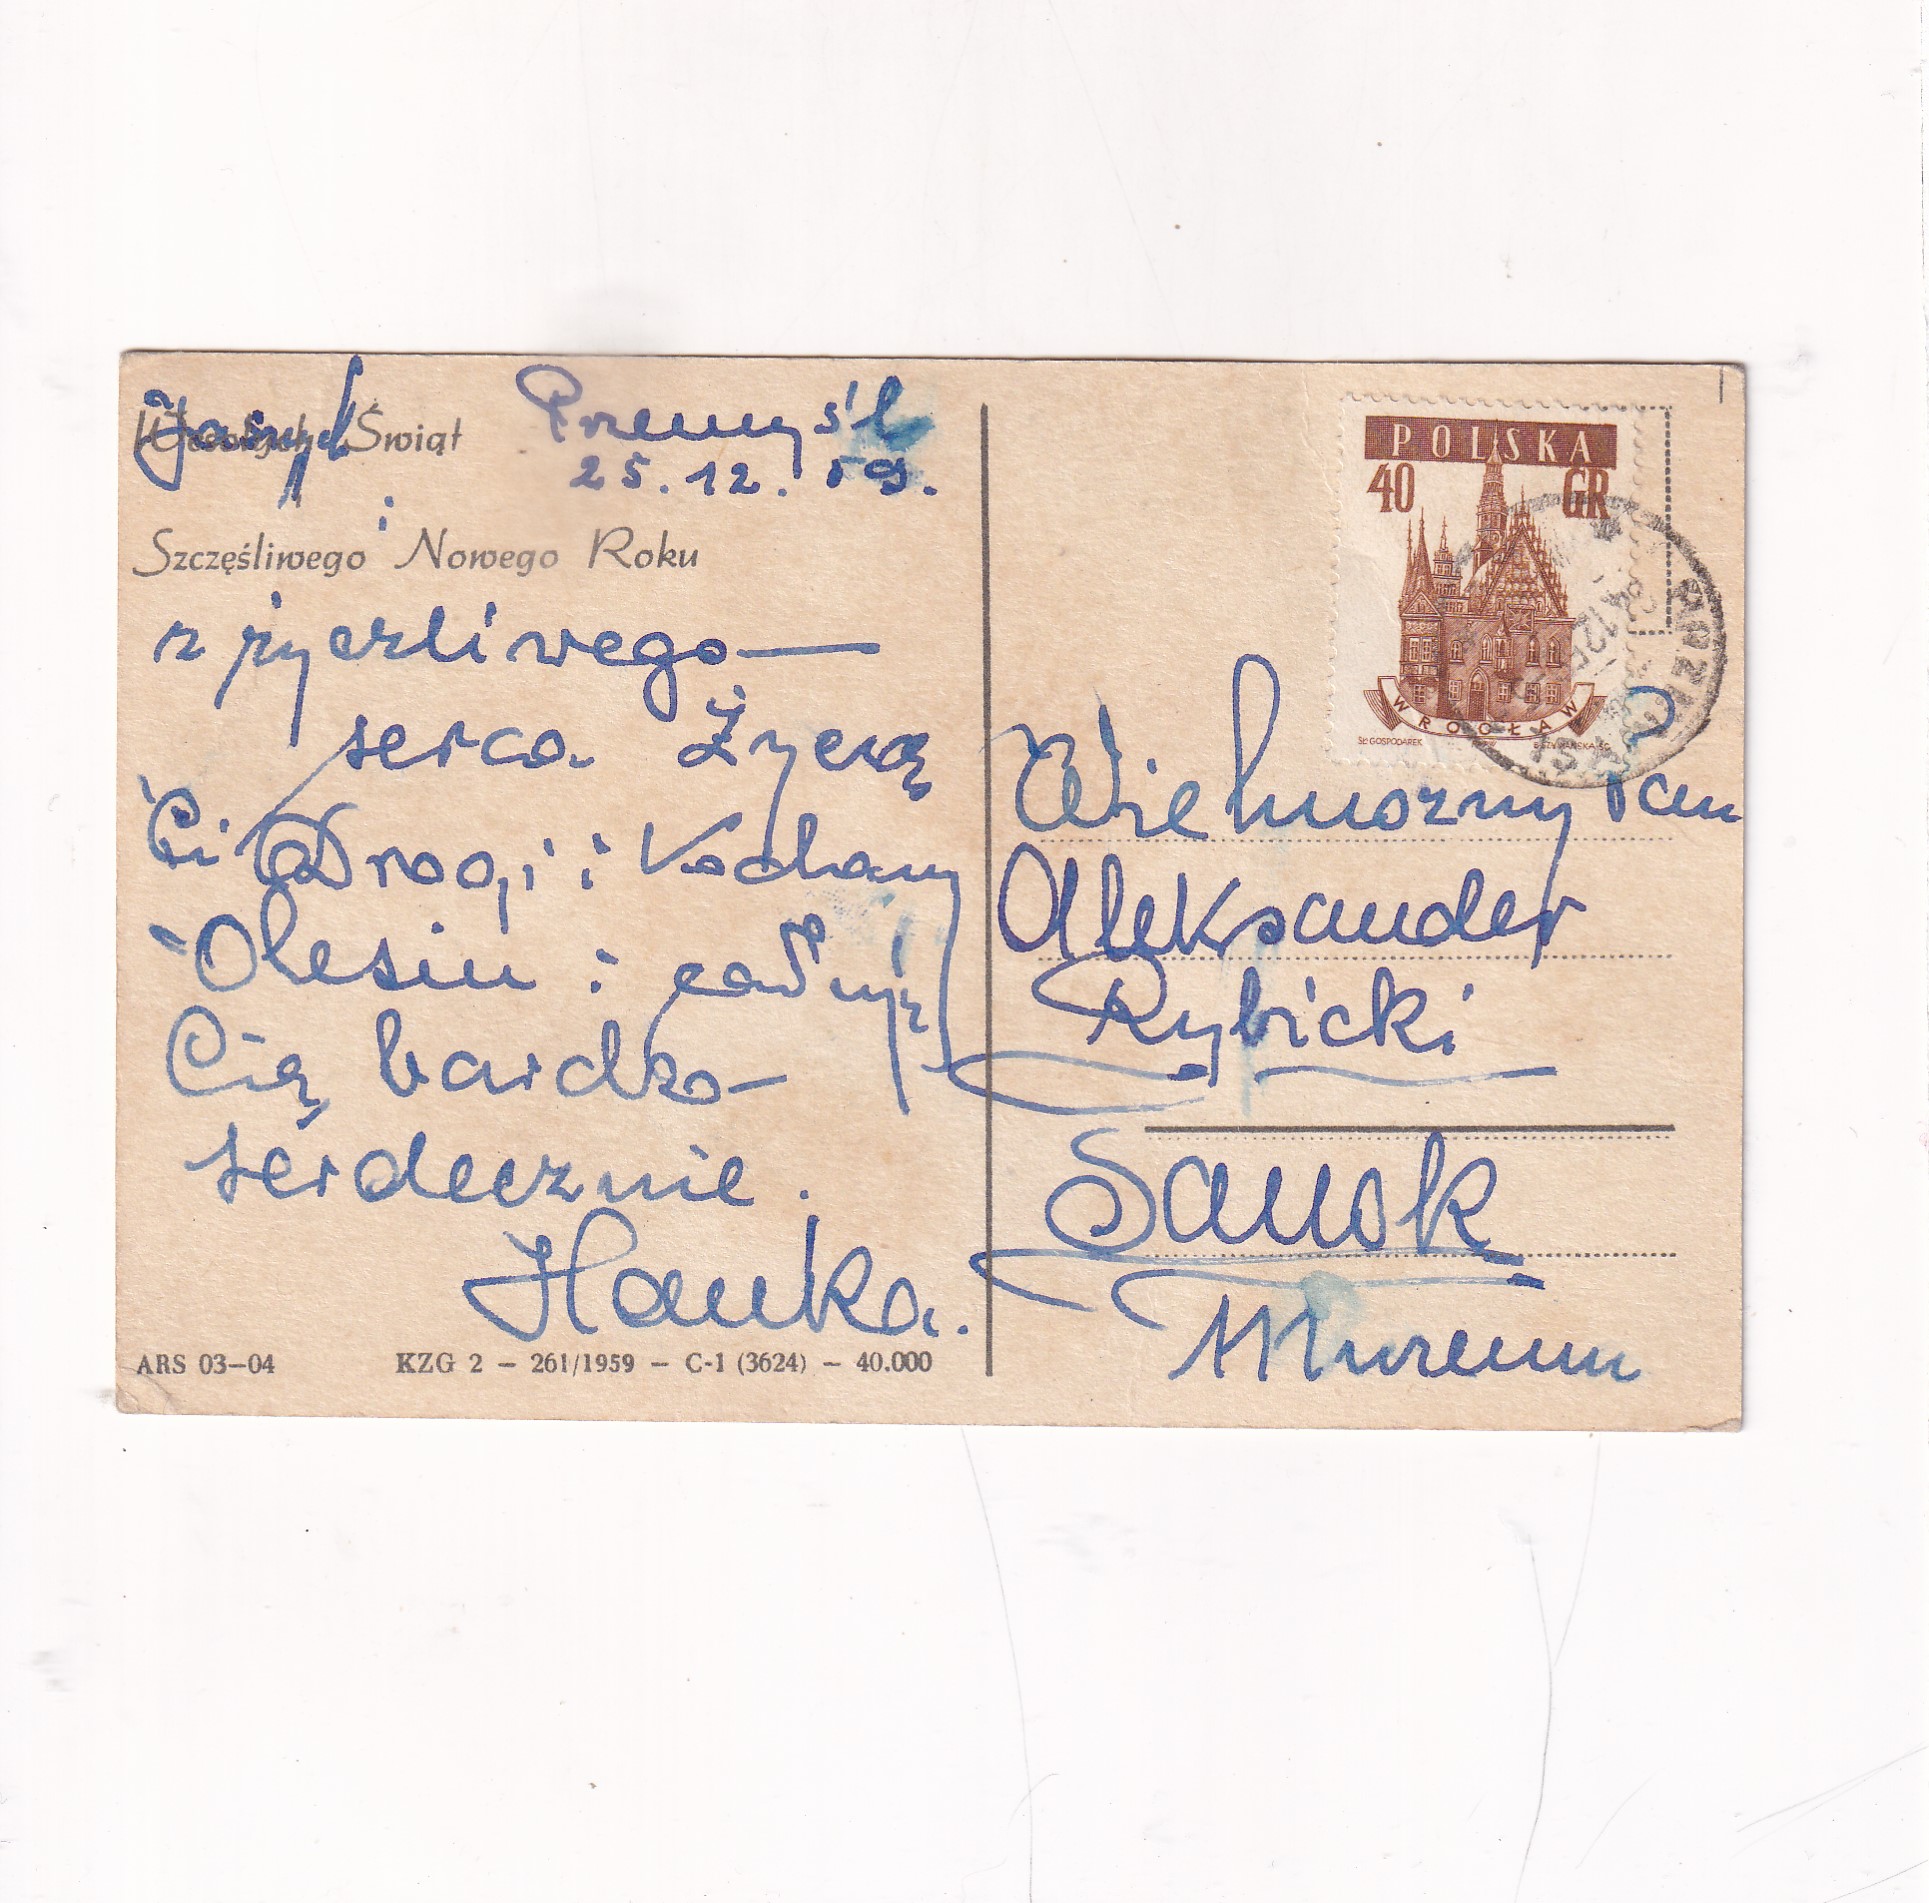 Przemyśl
25.12.59.
Świąt
i
Szczęśliwego Nowego Roku
z życzliwego
serca Życzą
Ci Drogi i Kochany
Olesiu i całuję
Cię bardzo
serdecznie.
Hanka.
ARS 03-04 KZG 2 - 261/1959 - C-1 (3624) - 40.000
POLSKA
40 GR
WROCŁAW
Wielmożny Pan
Aleksander
Rybicki
Sanok
Muzeum